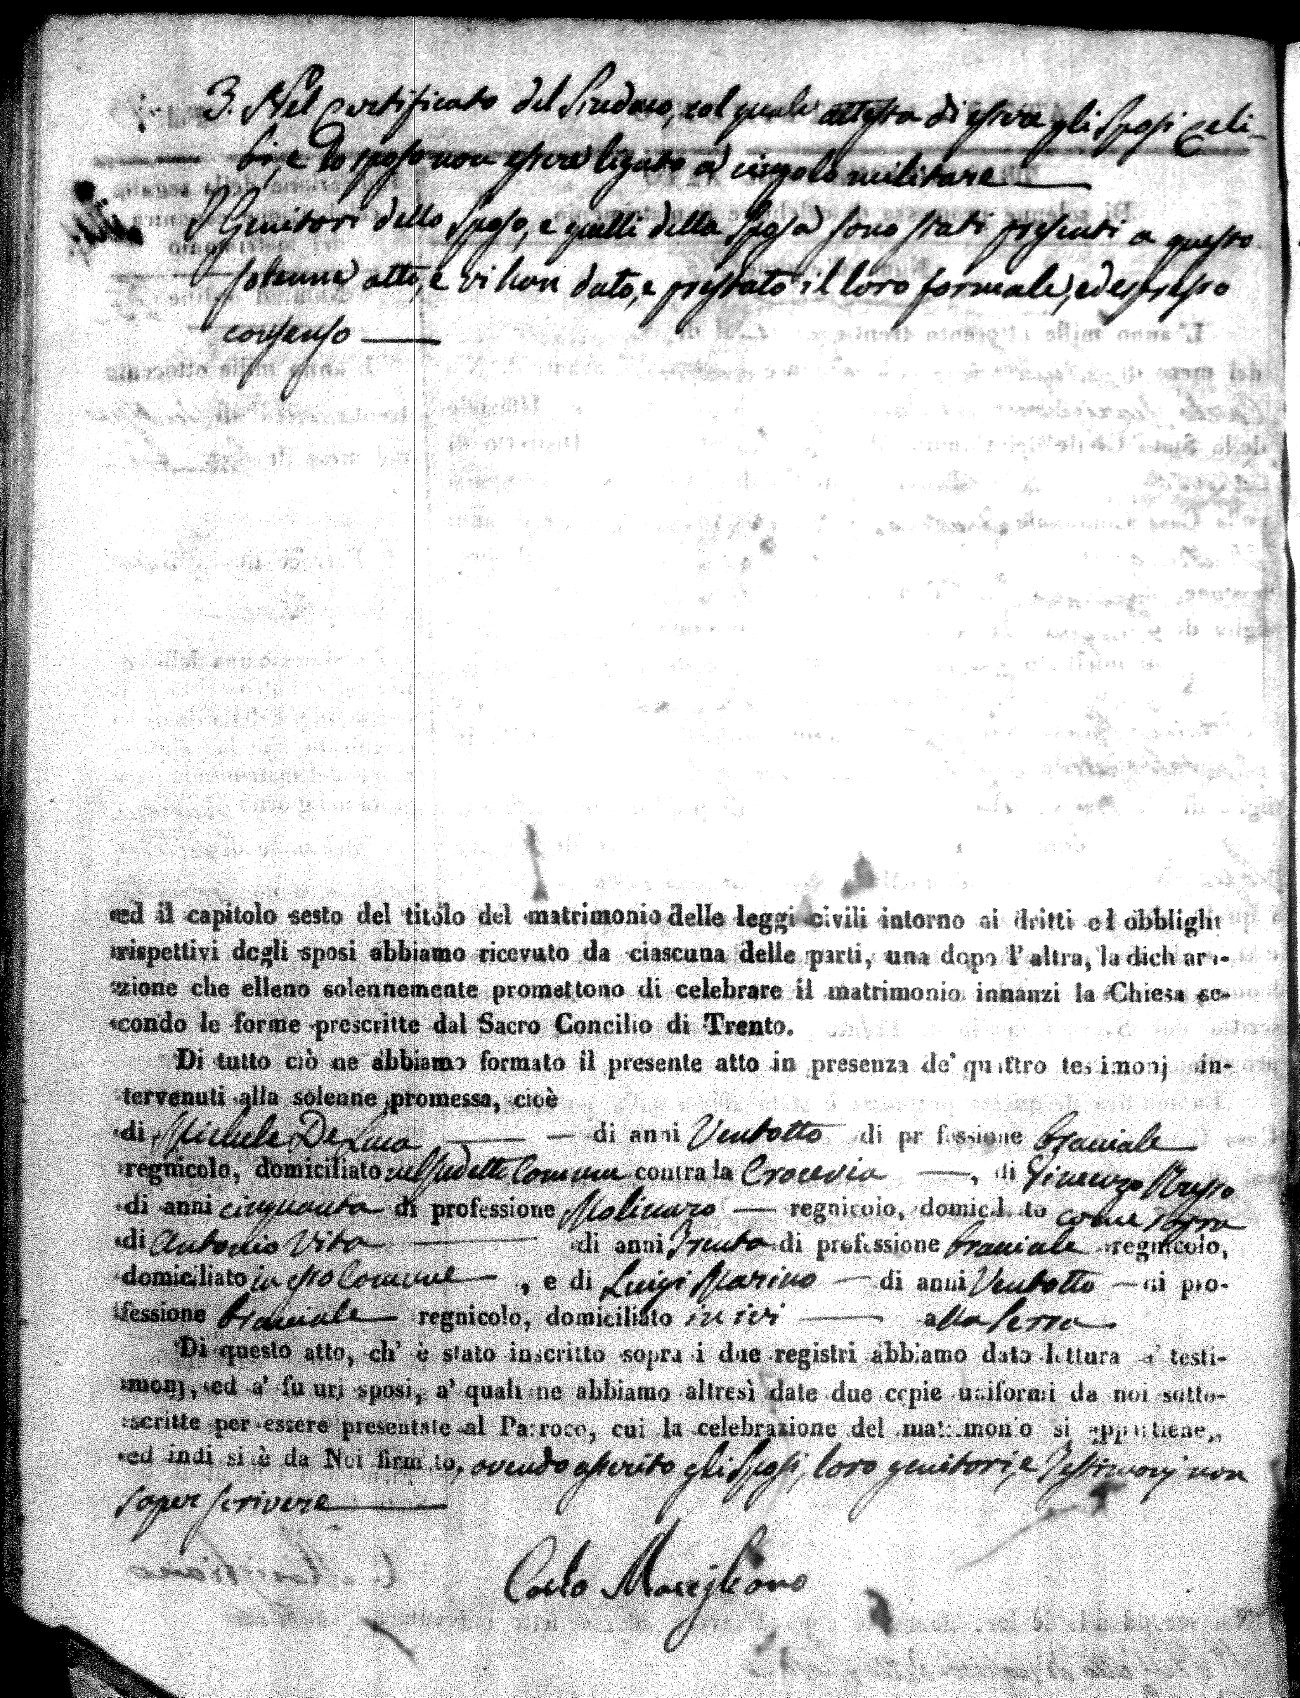 3. Nel Certificato del Sindaco, col quale attesta di essere gli Sposi Celi-
bi, e lo sposo non essere ligato a cingolo militare
I Genitori dello Sposo, e quelli della Sposa sono stati presenti a questo
solenne atto, e vi han dato, e prestato il loro formale, ed espresso
consenso
ed il capitolo sesto del titolo del matrimonio delle leggi civili intorno ai dritti ed obblighi
rispettivi degli sposi abbiamo ricevuto da ciascuna delle parti, una dopo l'altra, la dichiara-
zione che elleno solennemente promettono di celebrare il matrimonio innanzi la Chiesa se-
condo le forme prescritte dal Sacro Concilio di Trento.
Di tutto ciò ne abbiamo formato il presente atto in presenza de' quattro testimonj in-
tervenuti alla solenne promessa, cioè
di Michele De Luca di anni Ventotto di professione braciale
regnicolo, domiciliato nel sudetto Comune contra la Crocevia, di Vincenzo Russo
di anni cinquanta di professione Molinaro regnicolo, domiciliato come sopra
di Antonio Vita di anni Trenta di professione braciale regnicolo,
domiciliato in esso Comune, e di Luigi Marino di anni Ventotto di pro-
fessione braciale regnicolo, domiciliato in ivi alla Serra
Di questo atto, ch' è stato inscritto sopra i due registri abbiamo dato lettura a' testi-
monj, ed a' futuri sposi, a' quali ne abbiamo altresì date due copie uniformi da noi sotto-
scritte per essere presentate al Parroco, cui la celebrazione del matrimonio si appartiene,
ed indi si è da Noi firmato, avendo asserito gli Sposi, loro genitori, e Testimonj non
saper scrivere
Carlo Marsigliano